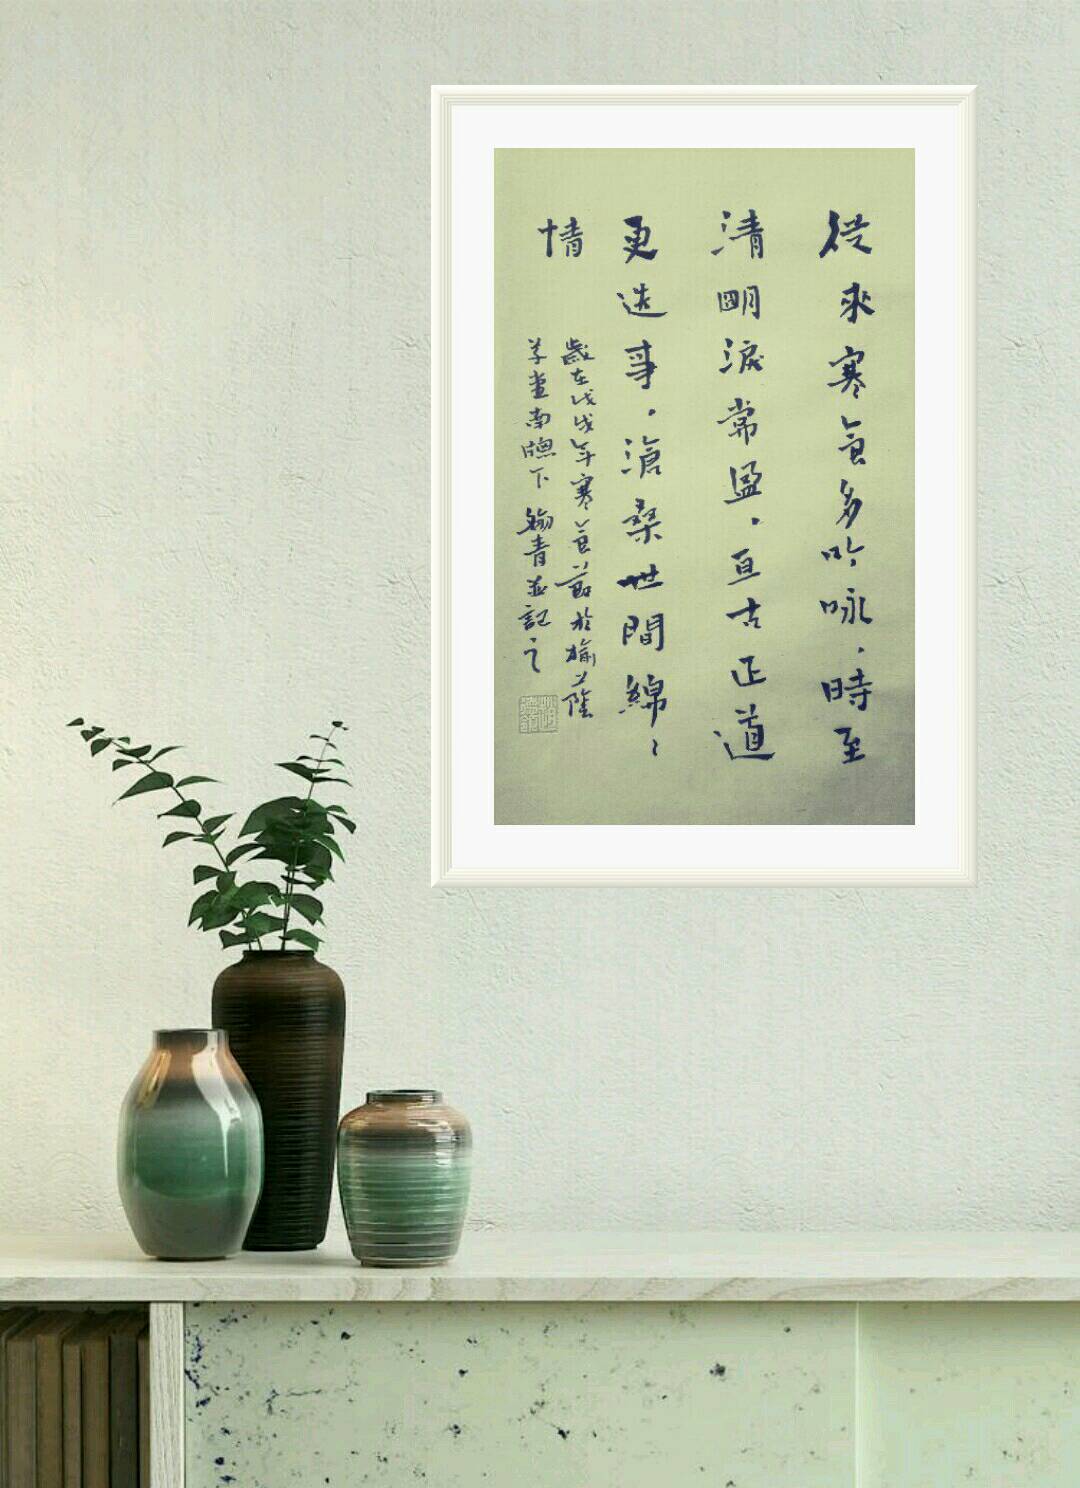 從來寒食多吟咏，時至
清明淚常盈，亘古正道
更迭事，滄桑世間綿々
情
歲在戊戌年寒食節於榆蔭
草堂南牕下 翰青並記之